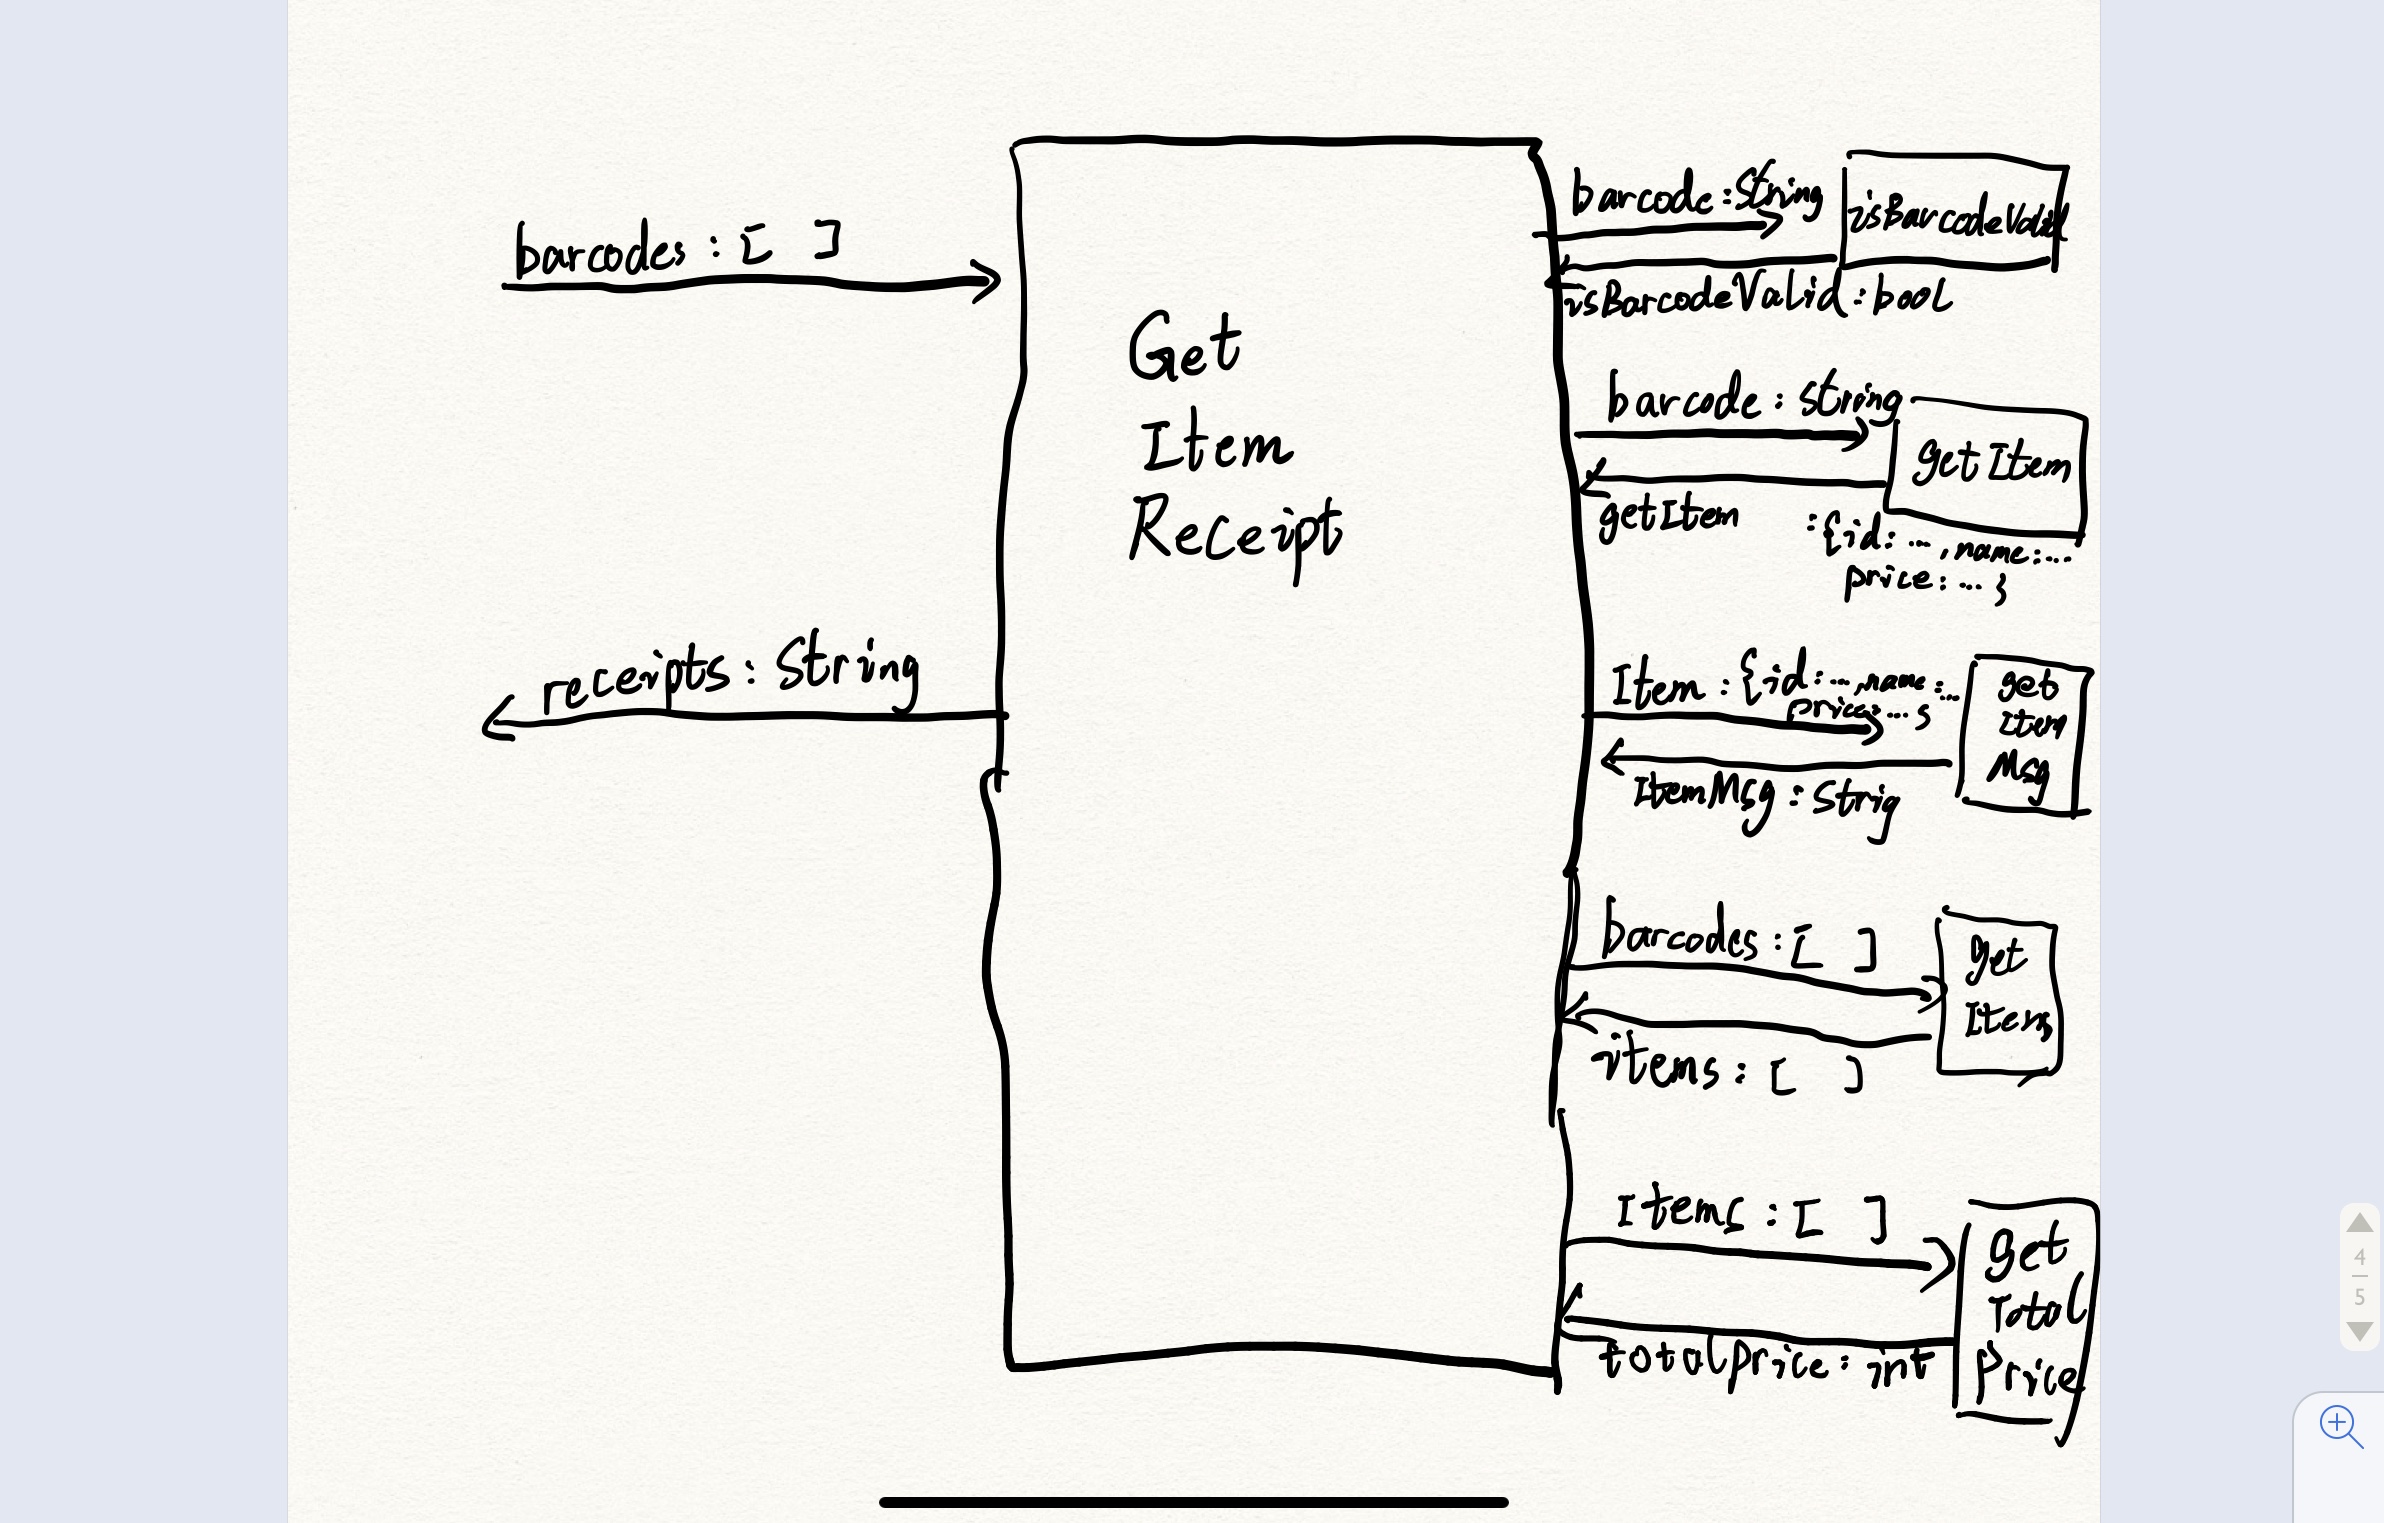 barcodes : [ ]
Get
Item
Receipt
receipts : String
barcode : String
isBarcodeValid
isBarcodeValid : bool
barcode : string
getItem
getItem : {id: ... , name: ...
price : ... }
Item : {id: ... , name: ...
price: ... }
get
Item
Msg
ItemMsg : Strig
barcodes : [ ]
get
Items
items : [ ]
Items : [ ]
get
Total
Price
totalprice : int
4
5